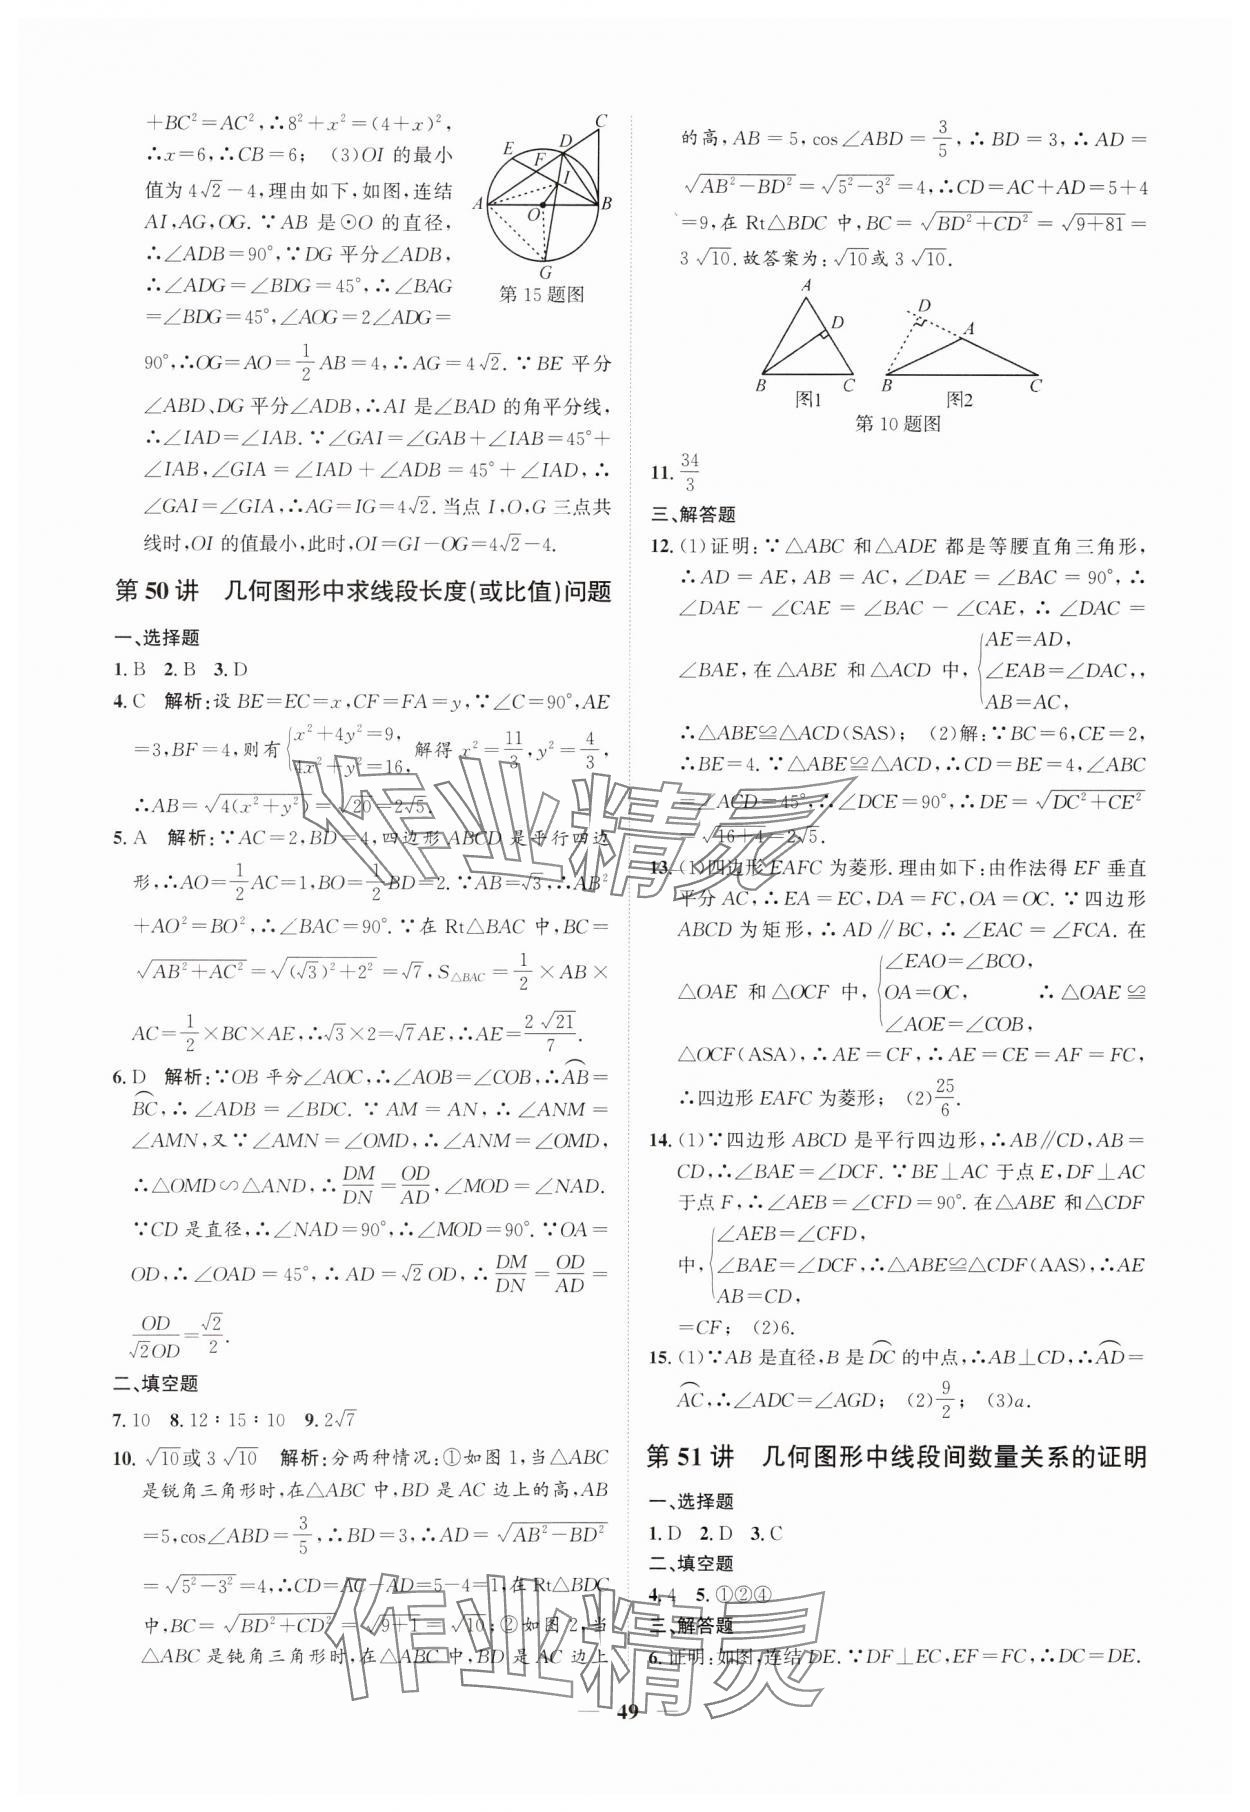 +BC²=AC²,∴8²+x²=(4+x)²,
∴x=6,∴CB=6; (3)OI 的最小
值为 4√2-4,理由如下,如图,连结
AI,AG,OG.∵AB 是⊙O 的直径,
∴∠ADB=90°,∵DG 平分∠ADB,
∴∠ADG=∠BDG=45°,∴∠BAG
=∠BDG=45°,∠AOG=2∠ADG=
C
E
D
F
I
A
O
B
G
第 15 题图
90°,∴OG=AO=1/2 AB=4,∴AG=4√2.∵BE 平分
∠ABD、DG 平分∠ADB,∴AI 是∠BAD 的角平分线,
∴∠IAD=∠IAB.∵∠GAI=∠GAB+∠IAB=45°+
∠IAB,∠GIA=∠IAD+∠ADB=45°+∠IAD,∴
∠GAI=∠GIA,∴AG=IG=4√2.当点 I,O,G 三点共
线时,OI 的值最小,此时,OI=GI-OG=4√2-4.
第 50 讲 几何图形中求线段长度(或比值)问题
一、选择题
1. B 2. B 3. D
4. C 解析:设 BE=EC=x,CF=FA=y,∵∠C=90°,AE
=3,BF=4,则有{x²+4y²=9, 4x²+y²=16, 解得 x²=11/3,y²=4/3,
∴AB=√(4(x²+y²))=√20=2√5.
5. A 解析:∵AC=2,BD=4,四边形 ABCD 是平行四边
形,∴AO=1/2 AC=1,BO=1/2 BD=2.∵AB=√3,∴AB²
+AO²=BO²,∴∠BAC=90°.∵在 Rt△BAC 中,BC=
√(AB²+AC²)=√((√3)²+2²)=√7,S△BAC=1/2×AB×
AC=1/2×BC×AE,∴√3×2=√7AE,∴AE=2√21/7.
6. D 解析:∵OB 平分∠AOC,∴∠AOB=∠COB,∴⌒AB=
⌒BC,∴∠ADB=∠BDC.∵AM=AN,∴∠ANM=
∠AMN,又∵∠AMN=∠OMD,∴∠ANM=∠OMD,
∴△OMD∽△AND,∴DM/DN=OD/AD,∠MOD=∠NAD.
∵CD 是直径,∴∠NAD=90°,∴∠MOD=90°.∵OA=
OD,∴∠OAD=45°,∴AD=√2 OD,∴DM/DN=OD/AD=
OD/√2OD=√2/2.
二、填空题
7. 10 8. 12∶15∶10 9. 2√7
10. √10或 3√10 解析:分两种情况:①如图 1,当△ABC
是锐角三角形时,在△ABC 中,BD 是 AC 边上的高,AB
=5,cos∠ABD=3/5,∴BD=3,∴AD=√(AB²-BD²)
=√(5²-3²)=4,∴CD=AC-AD=5-4=1,在 Rt△BDC
中,BC=√(BD²+CD²)=√(9+1)=√10;②如图 2,当
△ABC 是钝角三角形时,在△ABC 中,BD 是 AC 边上
的高,AB=5,cos∠ABD=3/5,∴BD=3,∴AD=
√(AB²-BD²)=√(5²-3²)=4,∴CD=AC+AD=5+4
=9,在 Rt△BDC 中,BC=√(BD²+CD²)=√(9+81)=
3√10.故答案为:√10或 3√10.
A
D
B
C
图1
D
A
B
C
图2
第 10 题图
11. 34/3
三、解答题
12. (1)证明:∵△ABC 和△ADE 都是等腰直角三角形,
∴AD=AE,AB=AC,∠DAE=∠BAC=90°,∴
∠DAE-∠CAE=∠BAC-∠CAE,∴∠DAC=
∠BAE,在△ABE 和△ACD 中,{AE=AD, ∠EAB=∠DAC, AB=AC,,
∴△ABE≌△ACD(SAS); (2)解:∵BC=6,CE=2,
∴BE=4.∵△ABE≌△ACD,∴CD=BE=4,∠ABC
=∠ACD=45°,∴∠DCE=90°,∴DE=√(DC²+CE²)
=√(16+4)=2√5.
13. (1)四边形 EAFC 为菱形.理由如下:由作法得 EF 垂直
平分 AC,∴EA=EC,DA=FC,OA=OC.∵四边形
ABCD 为矩形,∴AD∥BC,∴∠EAC=∠FCA.在
△OAE 和△OCF 中,{∠EAO=∠BCO, OA=OC, ∠AOE=∠COB, ∴△OAE≌
△OCF(ASA),∴AE=CF,∴AE=CE=AF=FC,
∴四边形 EAFC 为菱形; (2)25/6.
14. (1)∵四边形 ABCD 是平行四边形,∴AB∥CD,AB=
CD,∴∠BAE=∠DCF.∵BE⊥AC 于点 E,DF⊥AC
于点 F,∴∠AEB=∠CFD=90°.在△ABE 和△CDF
中,{∠AEB=∠CFD, ∠BAE=∠DCF, AB=CD, ∴△ABE≌△CDF(AAS),∴AE
=CF; (2)6.
15. (1)∵AB 是直径,B 是⌒DC 的中点,∴AB⊥CD,∴⌒AD=
⌒AC,∴∠ADC=∠AGD; (2)9/2; (3)a.
第 51 讲 几何图形中线段间数量关系的证明
一、选择题
1. D 2. D 3. C
二、填空题
4. 4 5. ①②④
三、解答题
6. 证明:如图,连结 DE.∵DF⊥EC,EF=FC,∴DC=DE.
— 49 —
作业精灵
作业精灵